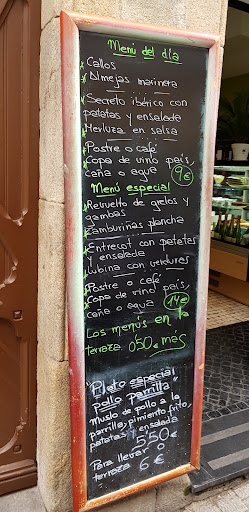 Menú del día
Callos
Almejas marinera
Secreto ibérico con
patatas y ensalada
Merluza en salsa
Postre o café
Copa de vino país,
caña o agua 9€
Menú especial
Revuelto de grelos y
gambas
Zamburiñas plancha
Entrecot con patatas
y ensalada
Lubina con verduras
Postre o café
Copa de vino país,
caña o agua 14€
Los menús en la
terraza 0'50€ más
"Plato especial
pollo parrilla"
Muslo de pollo a la
parrilla, pimiento frito,
patatas y ensalada
5'50€
Para llevar o
terraza 6€